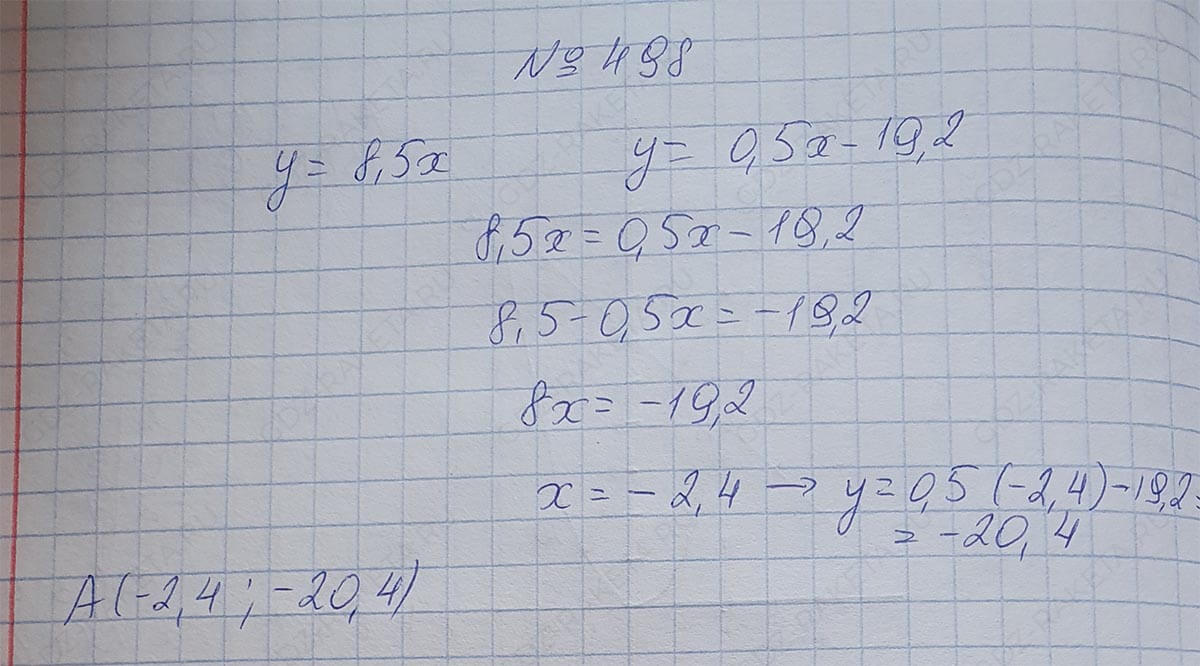 № 498
y = 8,5x y = 0,5x - 19,2
8,5x = 0,5x - 19,2
8,5 - 0,5x = -19,2
8x = -19,2
x = -2,4 → y = 0,5 (-2,4) - 19,2 =
= -20,4
A (-2,4 ; -20,4)